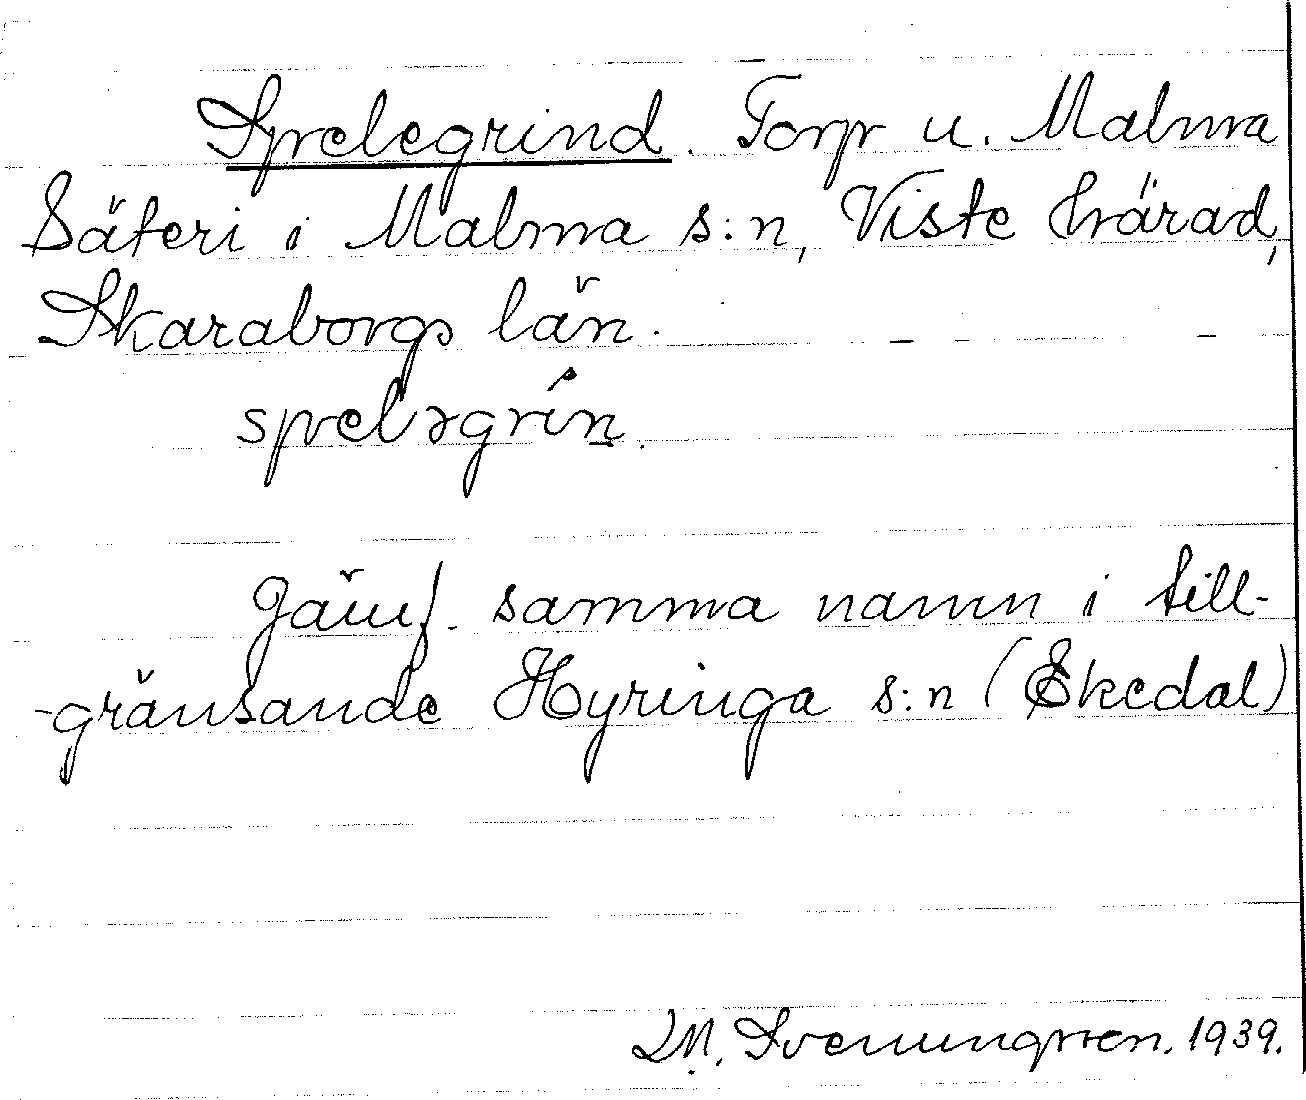 Spelegrind. Torp u. Malma
Säteri i Malma s:n, Viste härad,
Skaraborgs län.
spelǝgrín.
Jämf. samma namn i till-
-gränsande Hyringa s:n (Ekedal)
M. Svenungren. 1939.